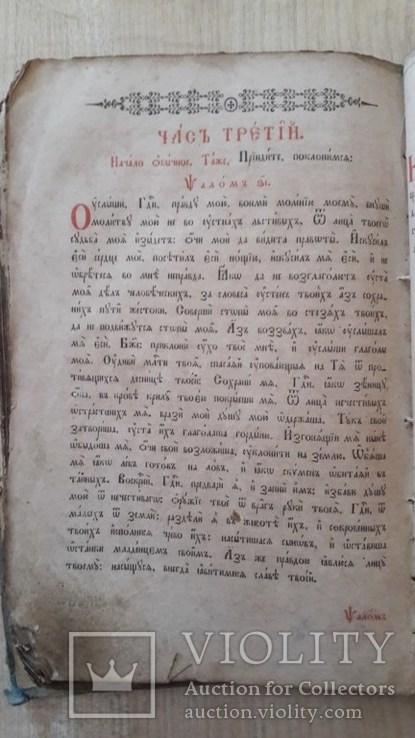 ЧА́СЪ ТРЕ́ТІЙ.
Нача́ло ѻ҆бы́чное. Та́же, Прїиди́те, поклони́мсѧ:
Ѱало́мъ ѕ҃і.
Оу҆слы́ши, Гдⷭ҇и, пра́вдꙋ мою̀, вонмѝ моле́нїю моемꙋ̀, внꙋшѝ
моли́твꙋ мою̀ не во ᲂу҆стна́хъ льсти́выхъ. Ѿ лица̀ твоегѡ̀
сꙋдьба̀ моѧ̀ и҆зы́детъ: ѻ҆́чи моѝ да ви́дита правѡты̑. И҆скꙋси́лъ
є҆сѝ се́рдце моѐ, посѣти́лъ є҆сѝ но́щїю, и҆скꙋси́лъ мѧ̀ є҆сѝ, и҆ не
ѡ҆брѣ́тесѧ во мнѣ̀ непра́вда. Ꙗ҆́кѡ да не возглаго́лютъ ᲂу҆ста̀
моѧ̑ дѣ́лъ человѣ́ческихъ, за словеса̀ ᲂу҆сте́нъ твои́хъ а҆́зъ сохра-
ни́хъ пꙋти̑ жє́стоки. Совершѝ стѡпы̀ моѧ̑ во стезѧ́хъ твои́хъ,
да не подви́жꙋтсѧ стѡпы̀ моѧ̑. А҆́зъ воззва́хъ, ꙗ҆́кѡ ᲂу҆слы́шалъ
мѧ̀ є҆сѝ, Бж҃е: приклонѝ ᲂу҆́хо твоѐ мнѣ̀, и҆ ᲂу҆слы́ши глаго́лы
моѧ̑. Оу҆дивѝ ми́лѡсти твоѧ̑, спаса́ѧй ᲂу҆пова́ющыѧ на Тѧ̀ ѿ про-
ти́вѧщихсѧ десни́цѣ твое́й: Сохранѝ мѧ̀, Гдⷭ҇и, ꙗ҆́кѡ зѣ́ницꙋ
ѻ҆́ка, въ кро́вѣ крилꙋ̀ твоє́ю покры́еши мѧ̀. Ѿ лица̀ нечести́выхъ
ѡ҆стра́стшихъ мѧ̀, вразѝ моѝ дꙋ́шꙋ мою̀ ѡ҆держа́ша. Тꙋ́къ сво́й
затвори́ша, ᲂу҆ста̀ и҆́хъ глаго́лаша горды́ню. И҆згонѧ́щїи мѧ̀ ны́нѣ
ѡ҆быдо́ша мѧ̀, ѻ҆́чи своѝ возложи́ша ᲂу҆клони́ти на зе́млю. Ѡ҆б̾ѧ́ша
мѧ̀ ꙗ҆́кѡ ле́въ гото́въ на ло́въ, и҆ ꙗ҆́кѡ скѵ́менъ ѡ҆бита́ѧй въ
та́йныхъ. Воскр҃нѝ, Гдⷭ҇и, предварѝ ѧ҆̀, и҆ запнѝ и҆̀мъ: и҆зба́ви дꙋ́шꙋ
мою̀ ѿ нечести́вагѡ: ѻ҆рꙋ́жїе твоѐ ѿ вра̑гъ рꙋкѝ твоеѧ̀, Гдⷭ҇и, ѿ
ма́лыхъ ѿ землѝ: раздѣлѝ ѧ҆̀ въ животѣ̀ и҆́хъ, и҆ сокрове́нныхъ
твои́хъ и҆спо́лнисѧ чре́во и҆́хъ: насы́тишасѧ сынѡ́въ, и҆ ѡ҆ста́виша
ѡ҆ста́нки младе́нцємъ свои̑мъ. А҆́зъ же пра́вдою ꙗ҆влю́сѧ лицꙋ̀
твоемꙋ̀: насы́щꙋсѧ, внегда̀ ꙗ҆ви́тимисѧ сла́вѣ твое́й.
Ѱало́мъ
VIOLITY
Auction for Collectors
auction.violity.com